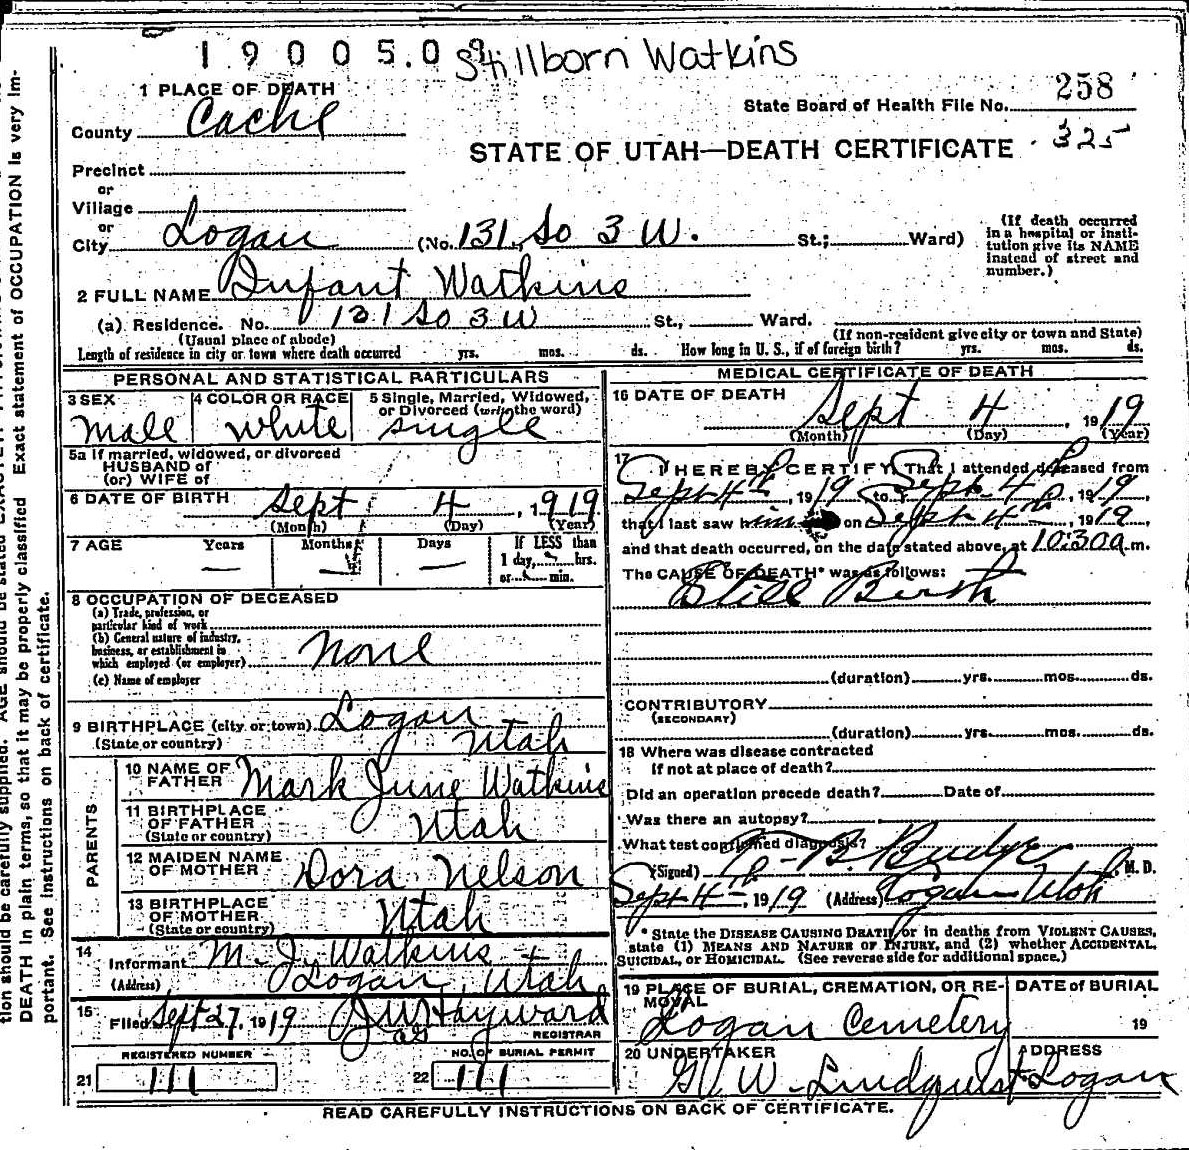 1900509
Stillborn Watkins
258
State Board of Health File No.
325
STATE OF UTAH—DEATH CERTIFICATE
1 PLACE OF DEATH
County Cache
Precinct
or
Village
or
City Logan (No. 131 So 3 W. St.; Ward)
(If death occurred in a hospital or insti-
tution give its NAME
instead of street and
number.)
2 FULL NAME Infant Watkins
(a) Residence. No. 131 So 3 W St., Ward.
(Usual place of abode) (If non-resident give city or town and State)
Length of residence in city or town where death occurred yrs. mos. ds. How long in U. S., if of foreign birth? yrs. mos. ds.
PERSONAL AND STATISTICAL PARTICULARS
3 SEX 4 COLOR OR RACE 5 Single, Married, Widowed,
or Divorced (write the word)
Male White Single
5a If married, widowed, or divorced
HUSBAND of
(or) WIFE of
6 DATE OF BIRTH Sept 4, 1919
(Month) (Day) (Year)
7 AGE Years Months Days If LESS than
1 day, hrs.
or min.
8 OCCUPATION OF DECEASED
(a) Trade, profession, or
particular kind of work
(b) General nature of industry,
business, or establishment in
which employed (or employer) None
(c) Name of employer
9 BIRTHPLACE (city or town) Logan
(State or country) Utah
PARENTS
10 NAME OF
FATHER Mark June Watkins
11 BIRTHPLACE
OF FATHER Utah
(State or country)
12 MAIDEN NAME
OF MOTHER Dora Nelson
13 BIRTHPLACE
OF MOTHER Utah
(State or country)
14
Informant M. J. Watkins
(Address) Logan, Utah
15 Filed Sept 27, 1919 J W Hayward
REGISTRAR
REGISTERED NUMBER NO. OF BURIAL PERMIT
21 111 22 111
MEDICAL CERTIFICATE OF DEATH
16 DATE OF DEATH
Sept 4, 1919
(Month) (Day) (Year)
17 I HEREBY CERTIFY, That I attended deceased from
Sept 4th, 1919 to Sept 4th, 1919,
that I last saw him on Sept 4th, 1919,
and that death occurred, on the date stated above, at 10:30 a.m.
The CAUSE OF DEATH* was as follows:
Still Birth
(duration) yrs. mos. ds.
CONTRIBUTORY
(SECONDARY)
(duration) yrs. mos. ds.
18 Where was disease contracted
if not at place of death?
Did an operation precede death? Date of
Was there an autopsy?
What test confirmed diagnosis?
(Signed) B. Budge, M. D.
Sept 4th, 1919 (Address) Logan Utah
* State the DISEASE CAUSING DEATH, or in deaths from VIOLENT CAUSES,
state (1) MEANS AND NATURE OF INJURY, and (2) whether ACCIDENTAL,
SUICIDAL, or HOMICIDAL. (See reverse side for additional space.)
19 PLACE OF BURIAL, CREMATION, OR RE-
MOVAL DATE of BURIAL
Logan Cemetery 19
20 UNDERTAKER ADDRESS
W. Lindquist Logan
READ CAREFULLY INSTRUCTIONS ON BACK OF CERTIFICATE.
tion should be carefully supplied. AGE should be stated
DEATH in plain terms, so that it may be properly classified Exact statement of OCCUPATION is very im-
portant. See instructions on back of certificate.